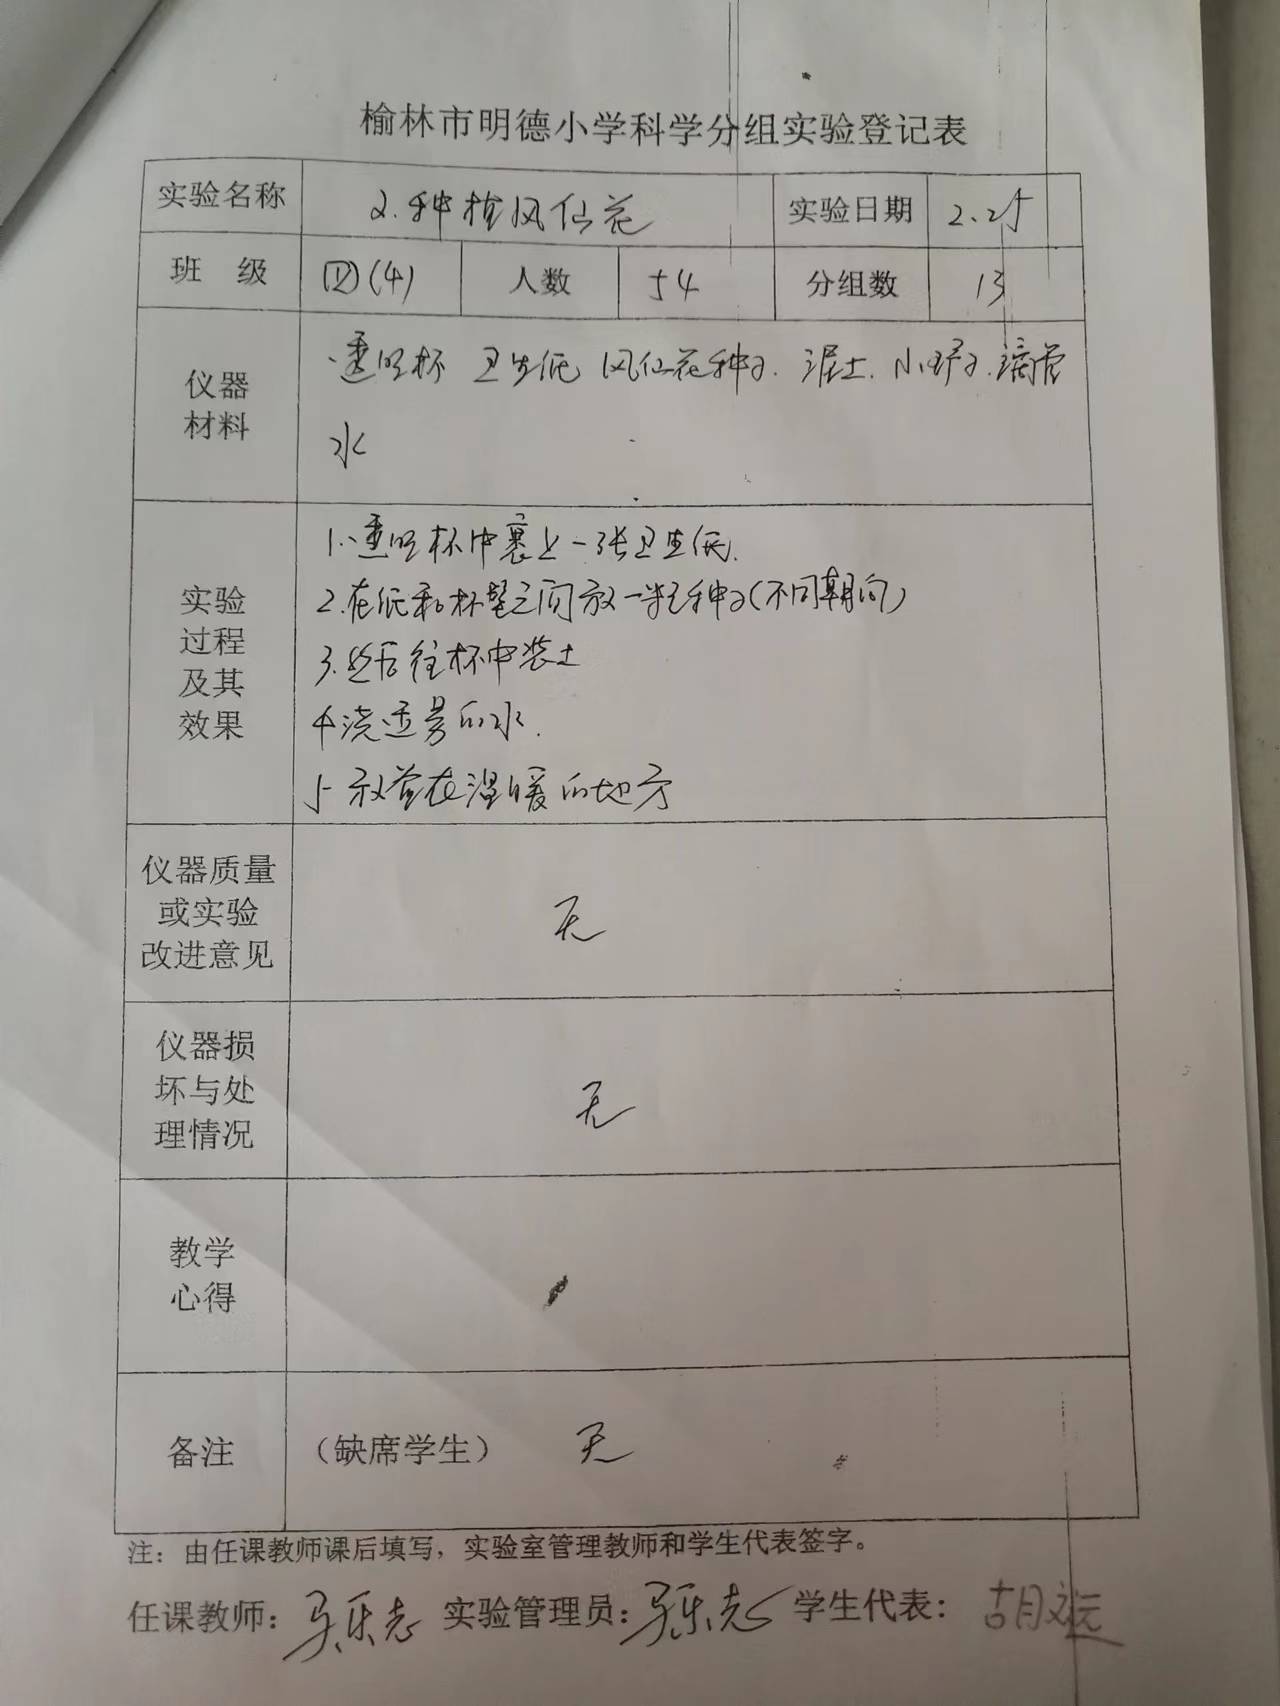 榆林市明德小学科学分组实验登记表
实验名称 2.种植凤仙花 实验日期 2.25
班 级 四(4) 人数 54 分组数 13
仪器材料 透明杯 卫生纸 凤仙花种子.泥土.小铲子.滴管
水
实验过程及其效果
1.透明杯中裹上一张卫生纸.
2.在纸和杯壁之间放一粒种子(不同朝向)
3.然后往杯中装土
4浇适量的水.
5-放置在温暖的地方
仪器质量或实验改进意见 无
仪器损坏与处理情况 无
教学心得
备注 (缺席学生) 无
注：由任课教师课后填写，实验室管理教师和学生代表签字。
任课教师: 马乐志 实验管理员: 马乐志 学生代表: 胡